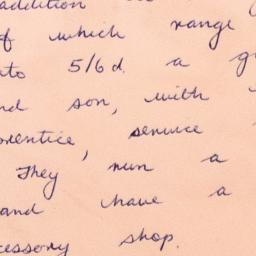 addition
of which range
to 5/6d. a
nd son, with
prentice, service
They run a
and have a
cessory shop.